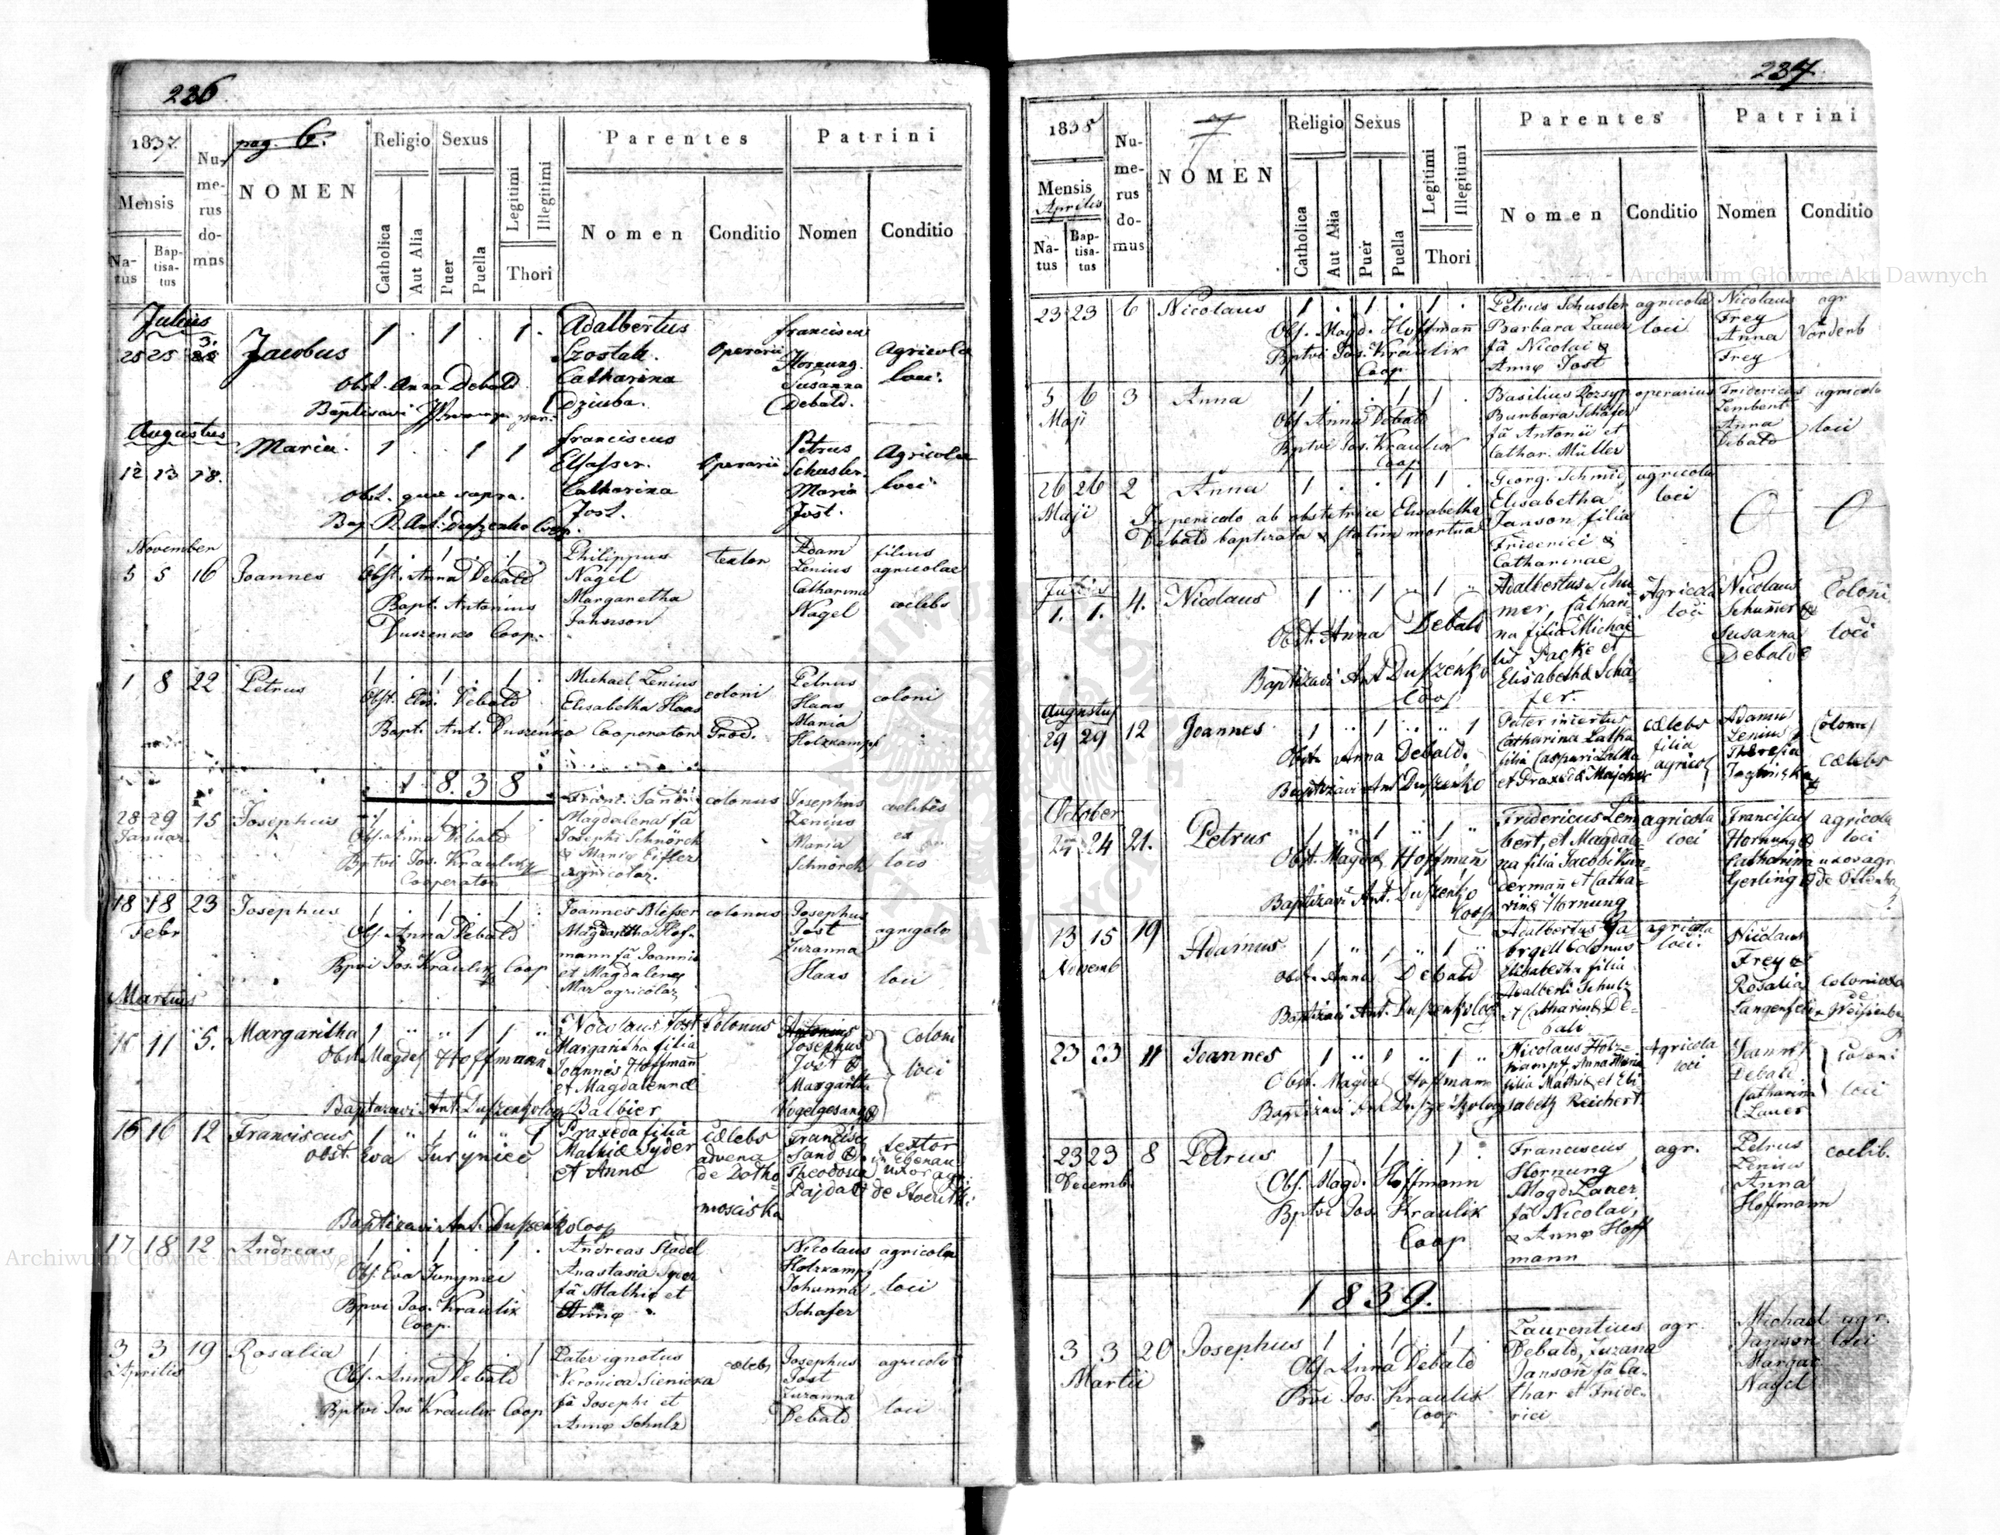 236
1837
Numerus domus
pag. 6.
NOMEN
Religio
Sexus
Parentes
Patrini
Mensis
Natus
Baptisatus
Catholica
Aut Alia
Puer
Puella
Legitimi
Illegitimi
Thori
Nomen
Conditio
Nomen
Conditio
Julius
25 25 3. Jacobus 1 . 1 . 1 . Adalbertus Szostak. Catharina Dziuba. Operarii Franciscus Hornung. Susanna Debald. Agricola loci.
Obst. Anna Debald
Augustus
12 13 18. Maria. 1 . . 1 1 Franciscus Elsasser. Catharina Jost. Operarii Petrus Schuster. Maria Jost. Agricola loci.
Obst. quae supra.
Bap. R. Ant. Duszenko Coop.
November
5 5 16 Joannes 1 . 1 . 1 . Philippus Nagel Margaretha Jansson textor Adam Zenius Catharina Nagel filius agricolae coelebs
Obst. Anna Debald
Bapt. Antonius
Duszenko Coop.
1 8 22 Petrus 1 . 1 . 1 . Michael Zenius Elisabetha Haas coloni Petrus Haas Maria Holzkampf coloni
Obst. Elis. Debald
Bapt. Ant. Duszenko Cooperator
1838
28 29 15 Josephus
Januar
1 . 1 . 1 . Magdalena fa Josephi Schnörch & Maria Eifler agricolar. colonus Josephus Zenius Maria Schnörch coelibes ex loco
Obs. Anna Debald
Bptvi Jos. Kraulik
Cooperator
18 18 23 Josephus
Febr
1 . 1 . 1 . Joannes Blesser Magdaretha Hofmann fa Joannis et Magdalenae agricolar. colonus Josephus Jost Zuzanna Haas agrigolae loci
Obs. Anna Debald
Bpvi Jos. Kraulik Coop
Martius
11 5. Margaritha 1 " " 1 1 " Nocolaus Jost Margaritha filia Joannes Hoffman et Magdalennae Balbier Colonus Josephus Jost & Margaritha Vogelgesang Coloni loci
Obst. Magdal Hoffmann
Baptizavi Ant. Duszenko Coop
16 16 12 Franciscus 1 " 1 " " 1 Praxeda filia Mathiae Syder et Annae coelebs advena de Dothomosciska Francisc Sand & Theodora Pajda textor in Ebenau uxor agr.
obst. Eva Juryniec
Baptizavi Ant. Duszenko Coop
17 18 12 Andreas 1 . 1 . 1 . Andreas Stadel Anastasia fa Mathiae et Annae Nicolaus Holzkampf Johanna Schafer agricolae loci
Obs. Eva Juryniec
Bpvi Jos. Kraulik
Coop.
3 3 19 Rosalia
Aprilis
1 . . 1 . 1 Pater ignotus Veronica Sienicka fa Josephi et Annae Schulz coelebs Josephus Jost Zuzanna Debald agricolae loci
Obs. Anna Debald
Bptvi Jos Kraulik Coop
237
1838
Numerus domus
7
NOMEN
Religio
Sexus
Parentes
Patrini
Mensis
Aprilis
Natus
Baptisatus
Catholica
Aut Alia
Puer
Puella
Legitimi
Illegitimi
Thori
Nomen
Conditio
Nomen
Conditio
23 23 6 Nicolaus 1 . 1 . 1 . Petrus Schuster Barbara Lauer fa Nicolai & Annae Jost agricola loci Nicolaus Frey Anna Frey agr
Obs. Magd. Hoffmann
Bptvi Jos. Kraulik
Coop
5 6 3 Anna
Maji
1 . . 1 1 . Basilius Barbara Schäfer fa Antonii et Cathar. Müller operarius Fridericus Lembert Anna Debald agricola loci
Obs. Anna Debald
Bptvi Jos. Kraulik
Coop
26 26 2 Anna
Maji
1 . . 1 1 . Georg. Schmid Elisabetha Janson filia Friderici & Catharinae agricola loci
In periculo ab obstetrice Elisabetha
Debald baptizata & statim mortua
1. 1. 4. Nicolaus 1 " 1 " 1 " Adalbertus Schumer, Catharina filia Michaelis Packe et Elisabeth Schäfer. Agricola loci Nicolaus Schumer & Susanna Debald Coloni loci
Obst. Anna Debald
Baptizavi Ant Duszenko
Coop
Augustus
29 29 12 Joannes 1 " 1 " " 1 Pater incertus Catharina Latka filia Caspari Latka et Praxeda coelebs filia agricol Adamus Zenius, Theresia Coloni coelebs
Obst. Anna Debald.
Baptizavi Ant Duszenko
October
24 24 21. Petrus 1 " 1 " 1 " Fridericus Lembert, et Magdalena filia Jacobi Kundermann et Catharinae Hornung agricola loci Franciscus Hornung & Catharina Gerling agricola loci uxor agr. de Ottenha
Obst. Magdal Hoffmann
Baptizavi Ant. Duszenko
Coop
13 15 19 Adamus
Novemb
1 " 1 " 1 " Adalbertus Gabryell Colonus Elisabetha filia Adalberti Schulz et Catharinae Debald agricola loci. Nicolaus Frey & Rosalia
Obst. Anna Debald
Baptizavi Ant. Duszenko Coop
23 23 11 Joannes 1 " 1 " 1 " Nicolaus Holzkampf, Anna Maria filia Mathiae et Elisabeth Reichert. Agricola loci Joannes Debald Catharina Lauer Coloni loci
Obst. Magdal Hoffmann
Baptizavi Ant Duszenko Coop
23 23 8 Petrus
Decemb.
1 . 1 . 1 . Franciscus Hornung Magd. Lauer fa Nicolai, & Annae Hoffmann agr. Petrus Zenius Anna Hoffmann coelib.
Obs. Magd. Hoffmann
Bptvi Jos. Kraulik
Coop
1839.
3 3 20 Josephus
Martii
1 . 1 . 1 . Laurentius Debald, Zuzana Janson fa Cathar et Friderici agr. Michael Janson Margar Nagel agr. loci
Obs. Anna Debald
Bpvi Jos. Kraulik
Coop
Archiwum Główne Akt Dawnych
Archiwum Główne Akt Dawnych